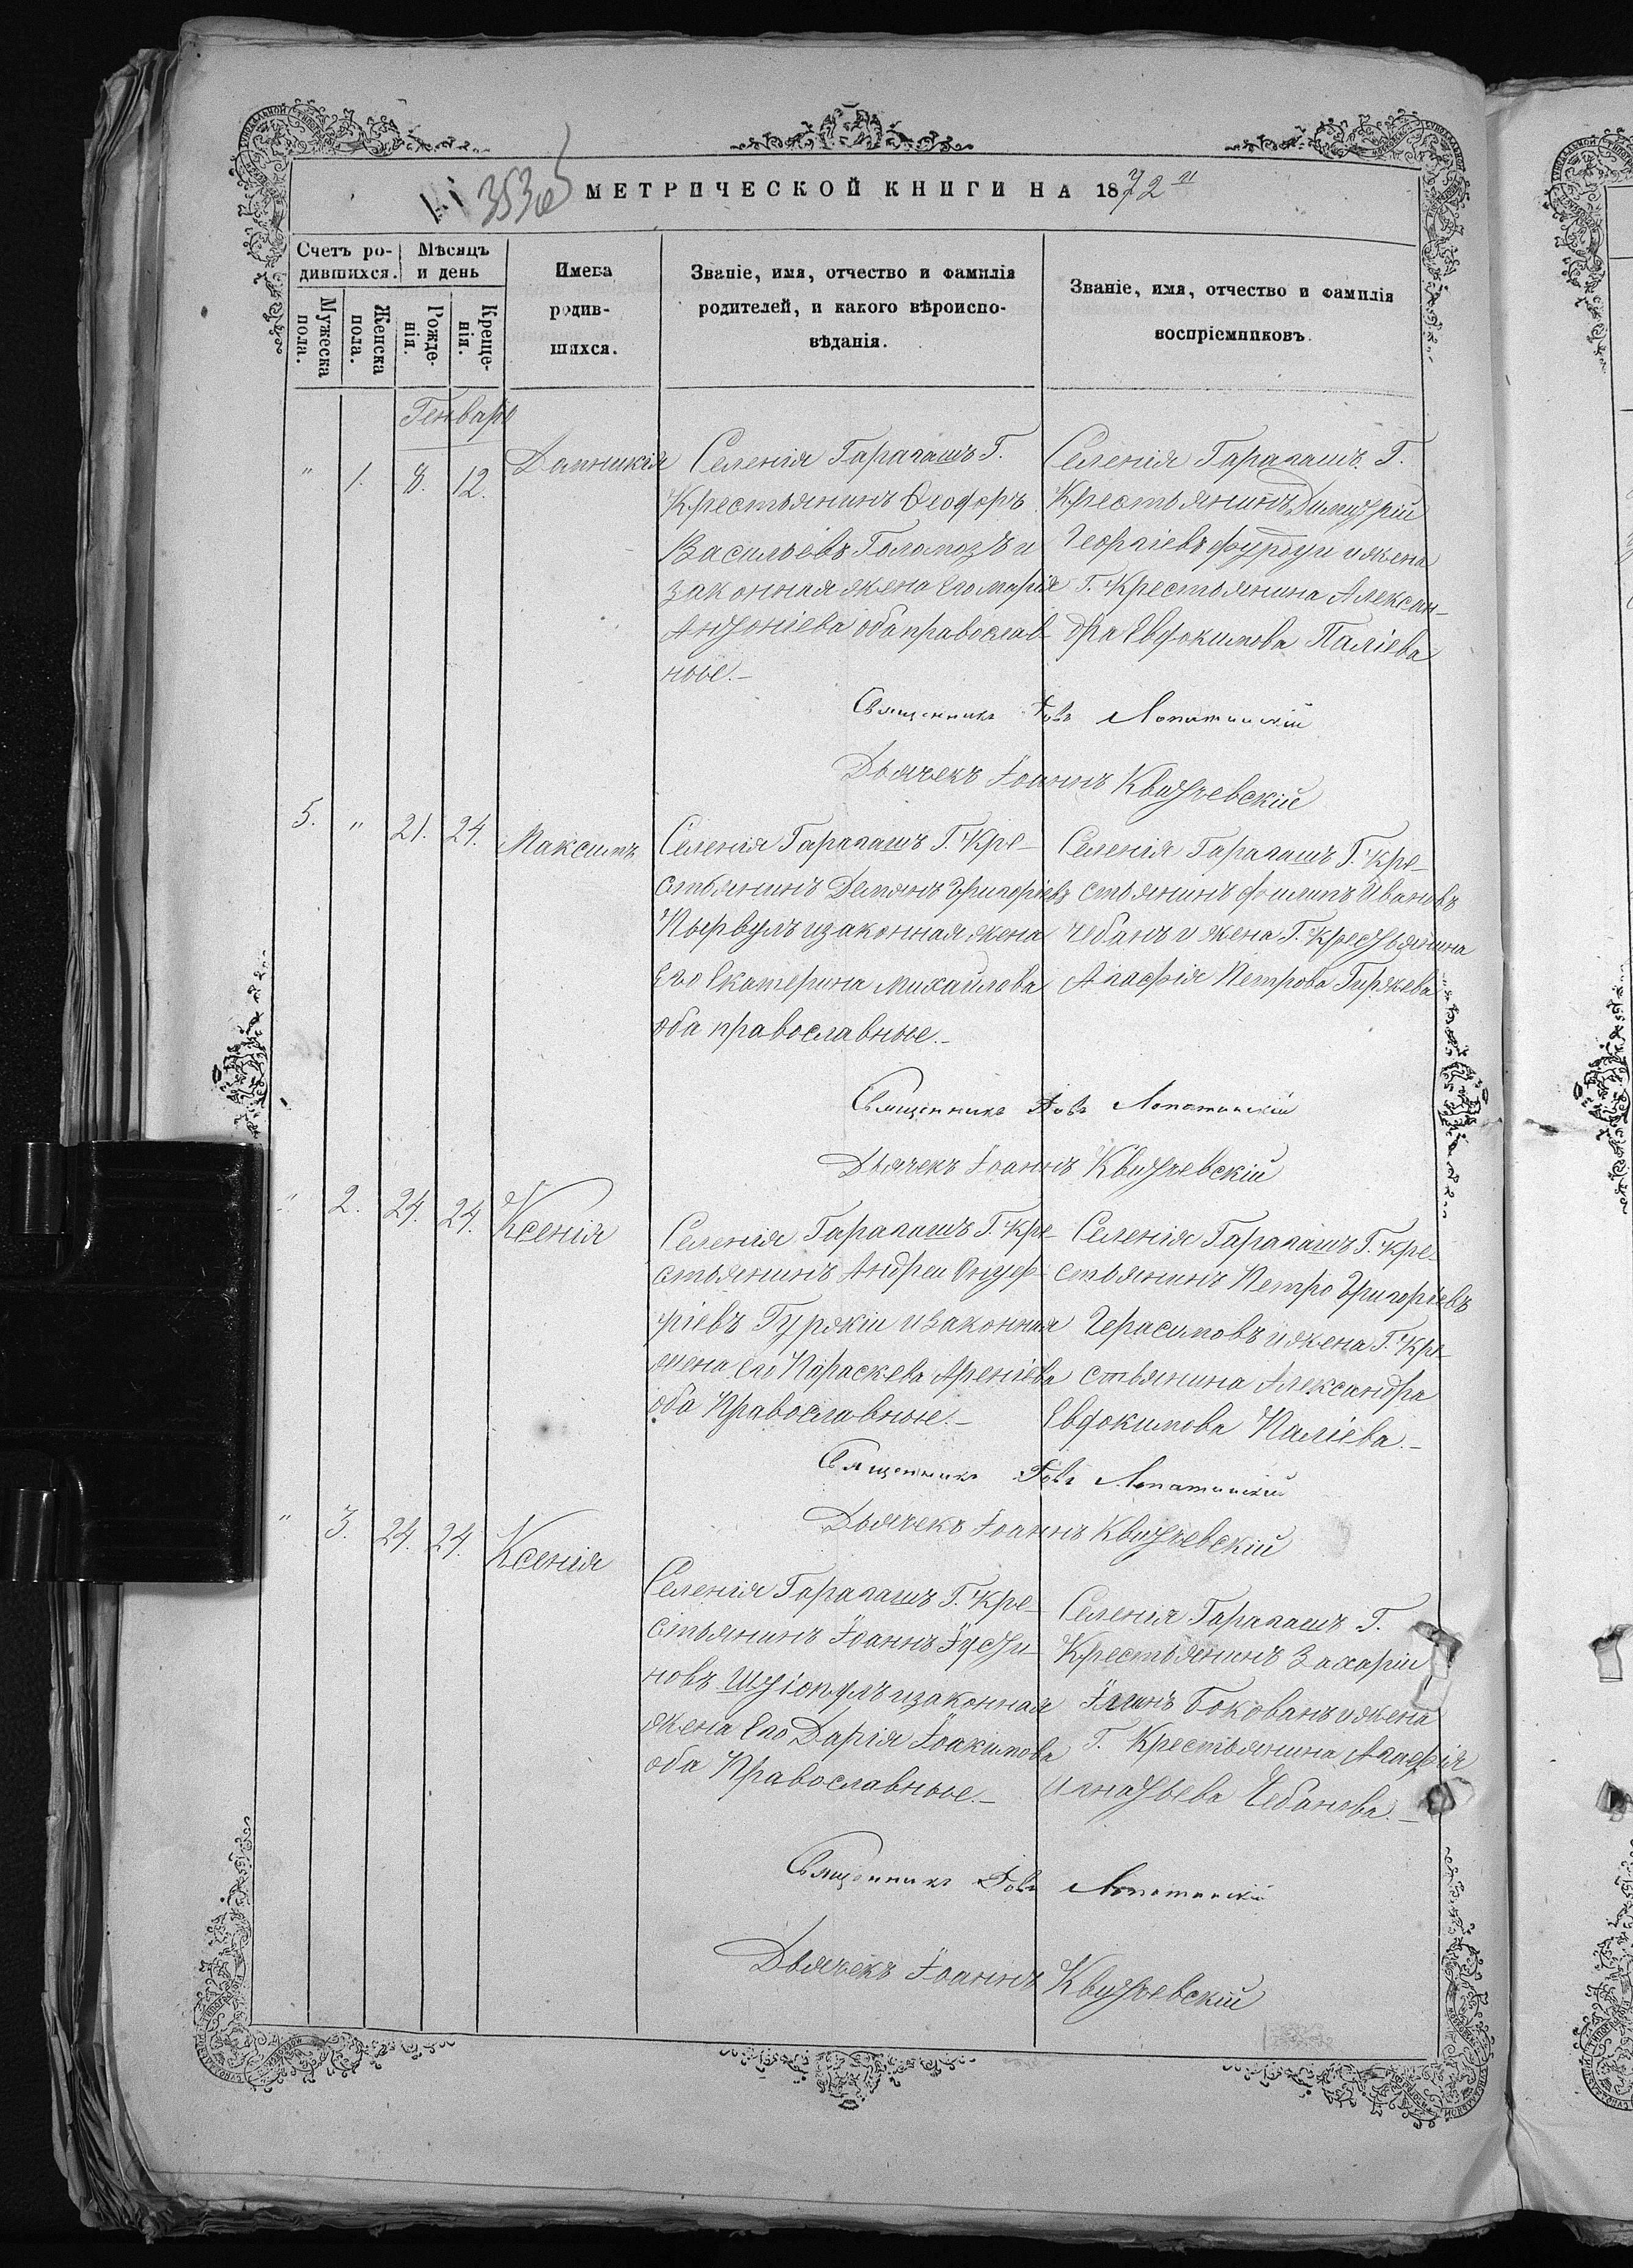 3530
МЕТРИЧЕСКОЙ КНИГИ НА 1872
Счетъ ро-
дившихся.
Мѣсяцъ
и день
Имена
родив-
шихся.
Званіе, имя, отчество и фамилія
родителей, и какого вѣроиспо-
вѣданія.
Званіе, имя, отчество и фамилія
воспріемниковъ.
Мужеска
пола.
Женска
пола.
Рожде-
нія.
Креще-
нія.
Генварь
" 1. 8. 12.
Домникія
Селенія Гарагашъ Г.
Крестьянинъ Феодоръ
ВасильевъГоломозъ и
законная жена его Марія
Антоніева оба православ-
ные.-
Селенія Гарагашъ Г.
Крестьянинъ Димитрій
Георгіевъ и жена
Г. Крестьянина Алексан-
дра Евфокимова Паліева
Священникъ Іовъ Лопатинскій
Дьячекъ Іоаннъ Квитчевскій
5. " 21. 24.
Максимъ
Селенія Гарагашъ Г. Кре-
стьянинъ Демянъ Григоріевъ
Пырвулъ и законная жена
Его Екатерина Михайлова
оба православные.-
Селенія Гарагашъ Г. Кре-
стьянинъ Филипъ Ивановъ
Чебанъ и жена Г. Крестьянина
Агафія Петрова Гиржева
Священникъ Іовъ Лопатинскій
Дьячекъ Іоаннъ Квитчевскій
" 2. 24. 24.
Ксенія
Селенія Гарагашъ Г. Кре-
стьянинъ Андреи Онуф-
ріевъ Гуржіи и законная
жена его Параскева Арсеніева
оба Православные.-
Селенія Гарагашъ Г. Кре-
стьянинъ Петро Григоріевъ
Герасимовъ и жена Г. Кре-
стьянина Александра
Евфокимова Паліева.-
Священникъ Іовъ Лопатинскій
Дьячекъ Іоаннъ Квитчевскій
" 3. 24. 24.
Ксенія
Селенія Гарагашъ Г. Кре-
стьянинъ Іоаннъ Іусти-
новъ и законная
жена Его Дарія Іоакимова
оба Православные.-
Селенія Гарагашъ Г.
Крестьянинъ Захаріи
Боковантъ и жена
Г. Крестьянина Агафія
Игнатьева Чебанова.-
Священникъ Іовъ Лопатинскій
Дьячекъ Іоаннъ Квитчевскій